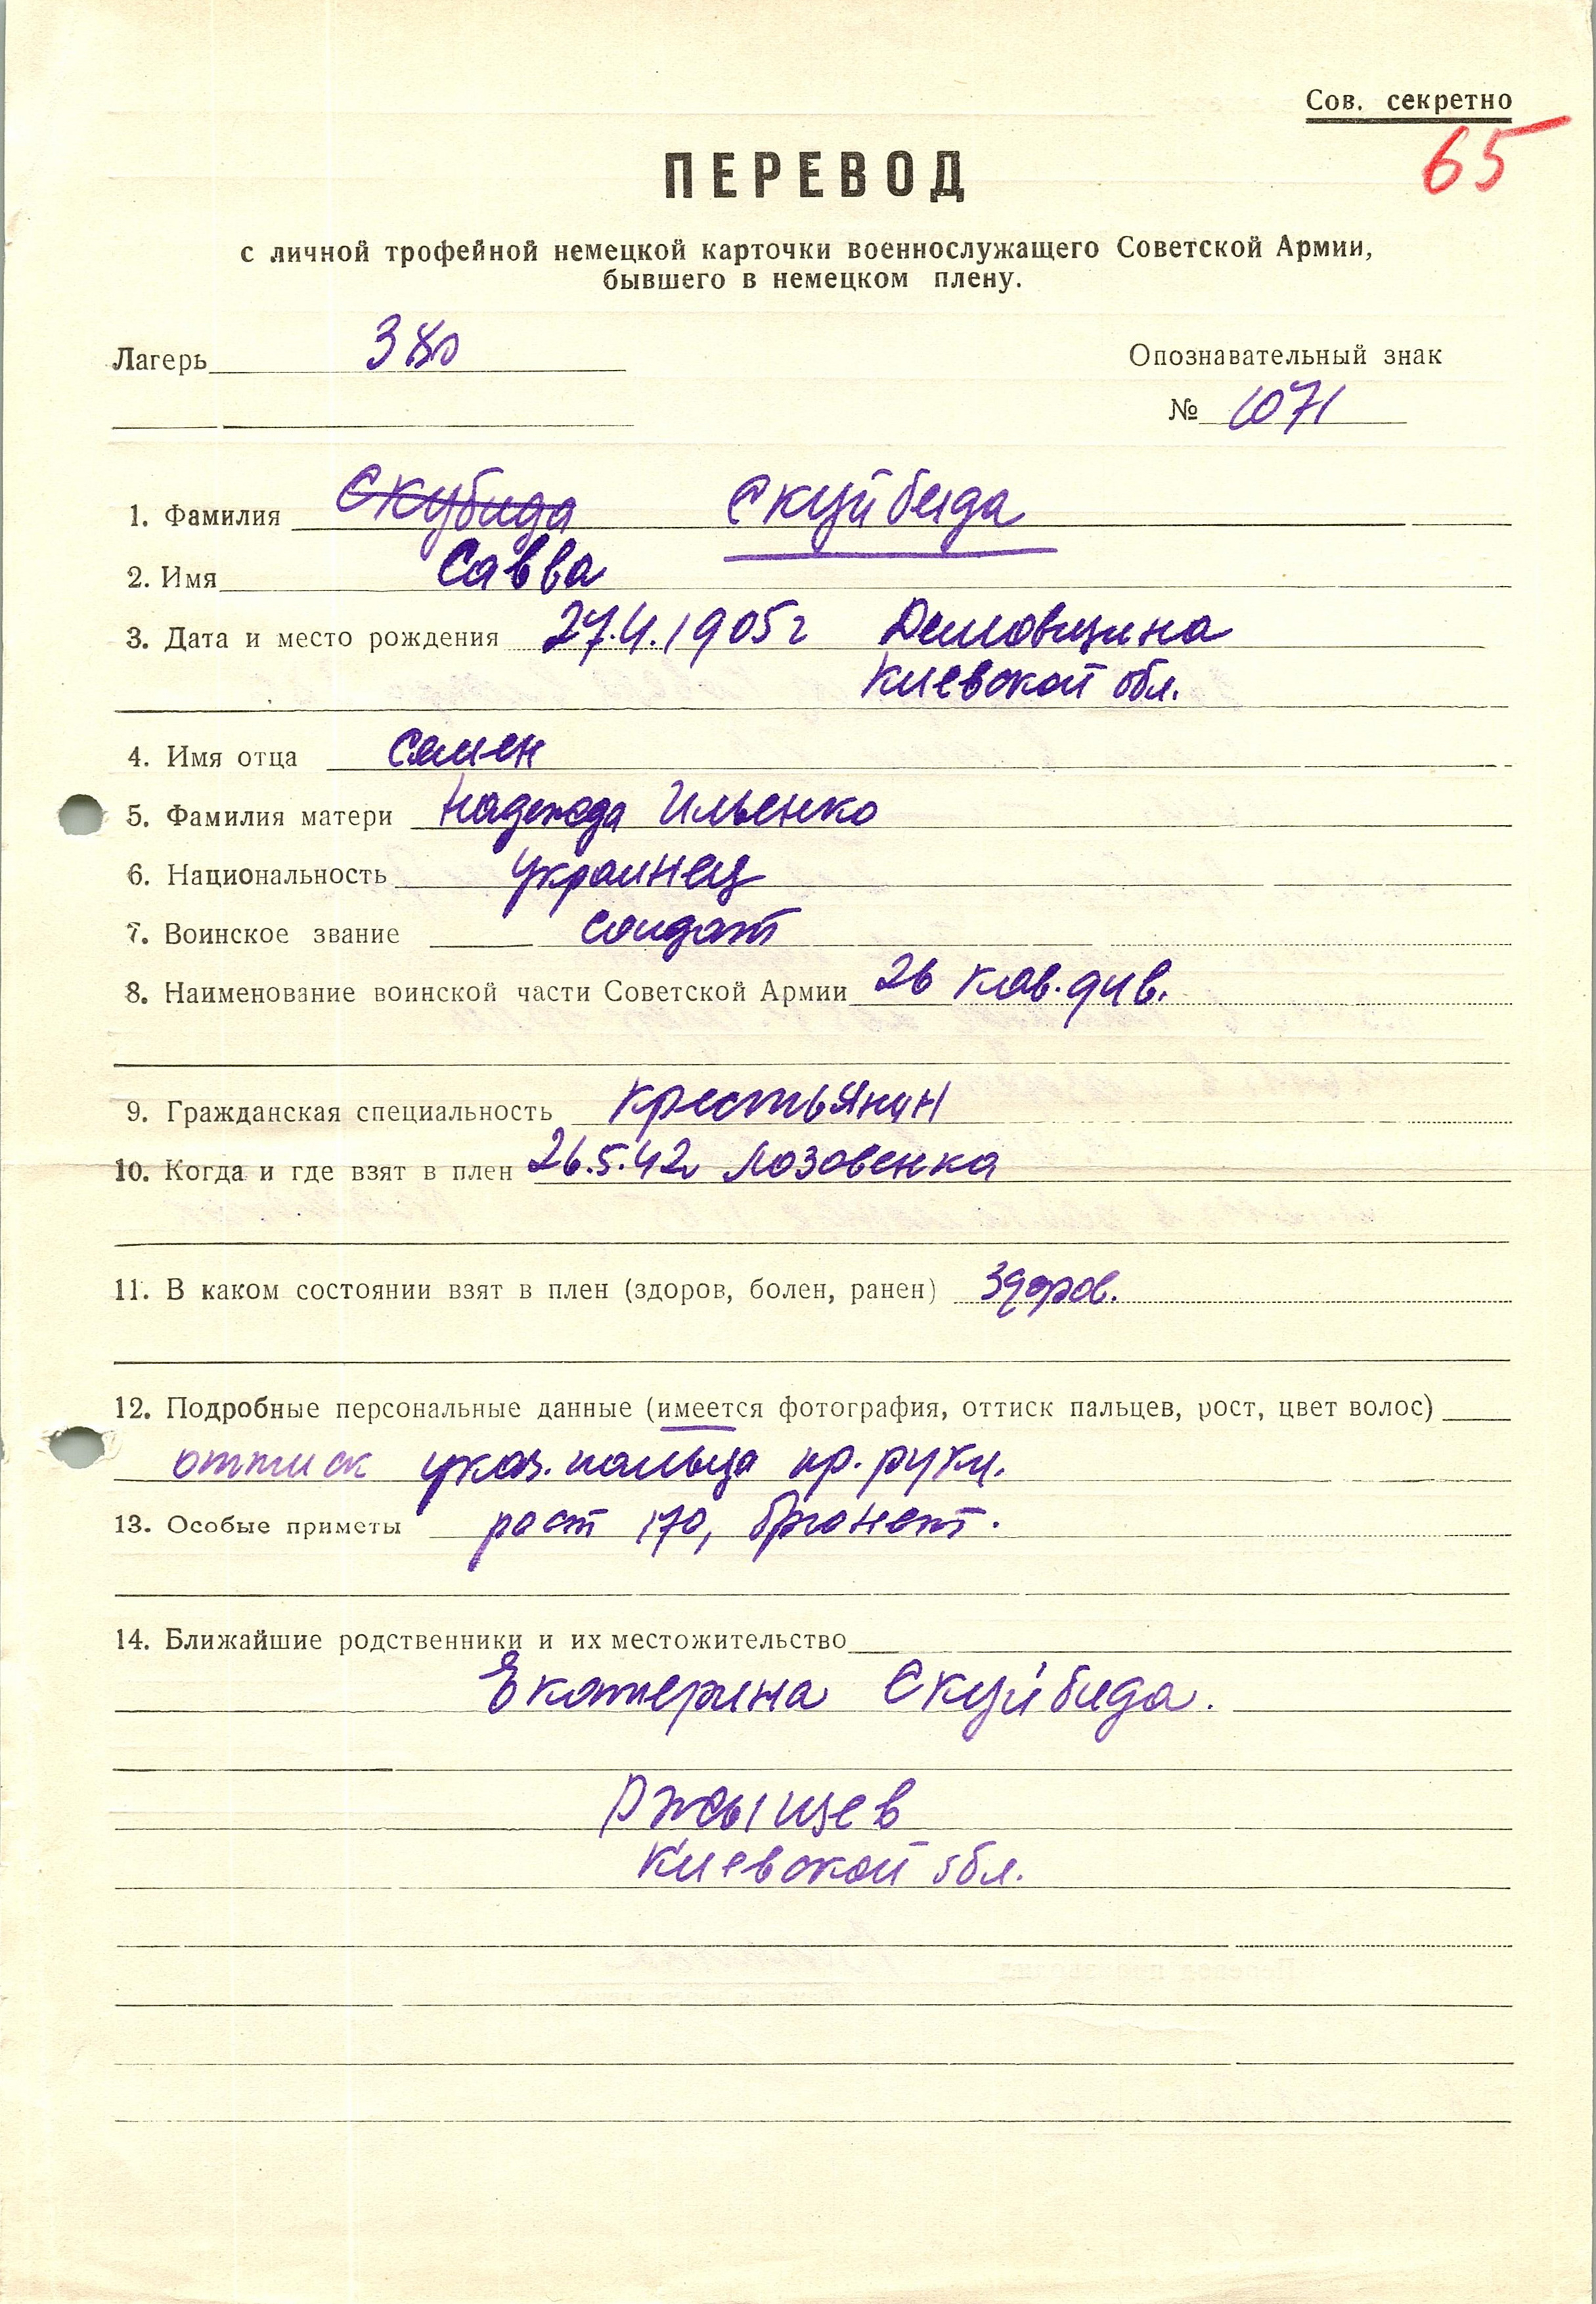 Сов. секретно
65
ПЕРЕВОД
с личной трофейной немецкой карточки военнослужащего Советской Армии,
бывшего в немецком плену.
Лагерь 380 Опознавательный знак
№ 1071
1. Фамилия Скубида Скуйбида
2. Имя Савва
3. Дата и место рождения 27.4.1905г Демовщина
Киевской обл.
4. Имя отца Семен
5. Фамилия матери Надежда Ильенко
6. Национальность украинец
7. Воинское звание солдат
8. Наименование воинской части Советской Армии 26 кав. див.
9. Гражданская специальность крестьянин
10. Когда и где взят в плен 26.5.42г Лозовенка
11. В каком состоянии взят в плен (здоров, болен, ранен) здоров.
12. Подробные персональные данные (имеется фотография, оттиск пальцев, рост, цвет волос)
оттиск указ. пальца пр. руки.
13. Особые приметы рост 170, брюнет.
14. Ближайшие родственники и их местожительство
Екатерина Скуйбида.
Ржыщев
Киевской обл.